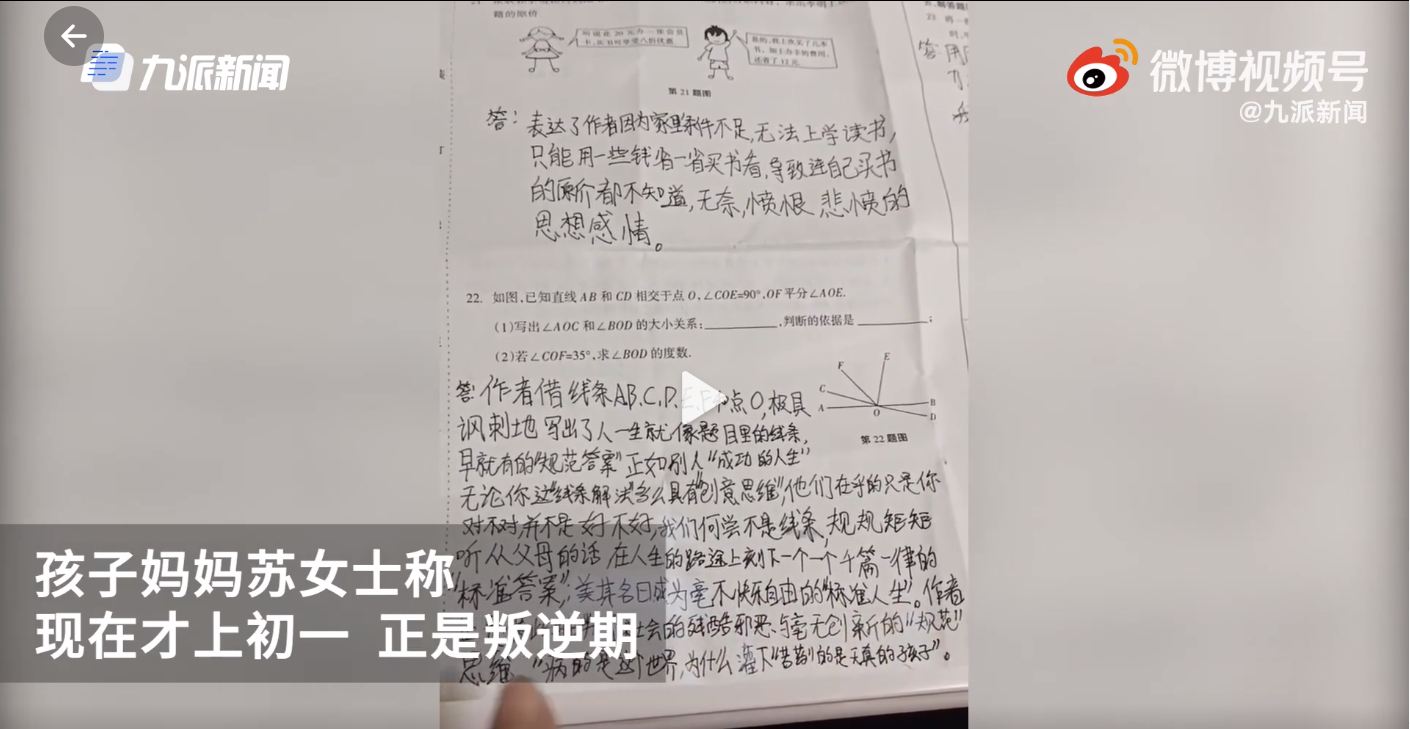 九派新闻
微博视频号
@九派新闻
题的原价
你说花20元办一张会员
卡,买书可享受八折优惠.
是的,我上次买了几本
书,加上办卡的费用,
还省了12元.
第21题图
答:表达了作者因为家里条件不足,无法上学读书,
只能用一些钱省一省买书看,导致连自己买书
的原价都不知道,无奈,愤恨 悲愤的
思想感情。
22. 如图,已知直线AB和CD相交于点O,∠COE=90°,OF平分∠AOE.
(1)写出∠AOC和∠BOD的大小关系: ,判断的依据是 ;
(2)若∠COF=35°,求∠BOD的度数.
F
E
C
A
O
B
D
第22题图
答:作者借线条AB.C.D.E.F和点O,极具
讽刺地写出了人一生就像题目里的线条,
早就有的"规范答案"正如别人"成功的人生"
无论你这"线条解法"多么具有"创意思维",他们在乎的只是你
对不对并不是好不好,我们何尝不是线条,规规矩矩
听从父母的话,在人生的路途上刻下一个一个千篇一律的
"标准答案",美其名曰成为毫不快乐自由的"标准人生"。作者
社会的残酷邪恶与毫无创新的"规范"
思维 "病的是这个世界,为什么灌下"苦药"的是天真的孩子"。
孩子妈妈苏女士称
现在才上初一 正是叛逆期
23
答:用